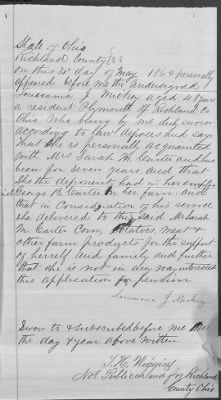 State of Ohio
Richland County SS
On this 30" day of May 1864 personally
appeared before me the undersigned
Lousanna J. McKay aged 48 years
a resident Plymouth of Richland Co
Ohio Who being by me duly sworn
according to law deposes and say
that she is personally acquainted
with Mrs Sarah M. Carter and has
been for seven years. And that
She the deponent had in her employ
George B. Carter on her farm and
that in Consideration of his service
she delivered to the said Mrs Sarah
M Carter Corn, potatoes, meat &
other farm products for the support
of herself and family and further
that she is not in any way interested
this application for pension
Sworn to & subscribed before me
the day & year above written
Not Public in and for Richland
County Ohio